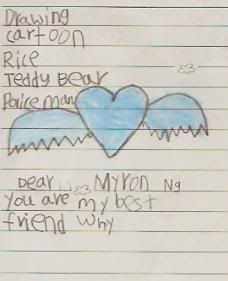 Drawing
cartoon
Rice
Teddy Bear
Police man
Dear Myron Ng
you are my best
friend why